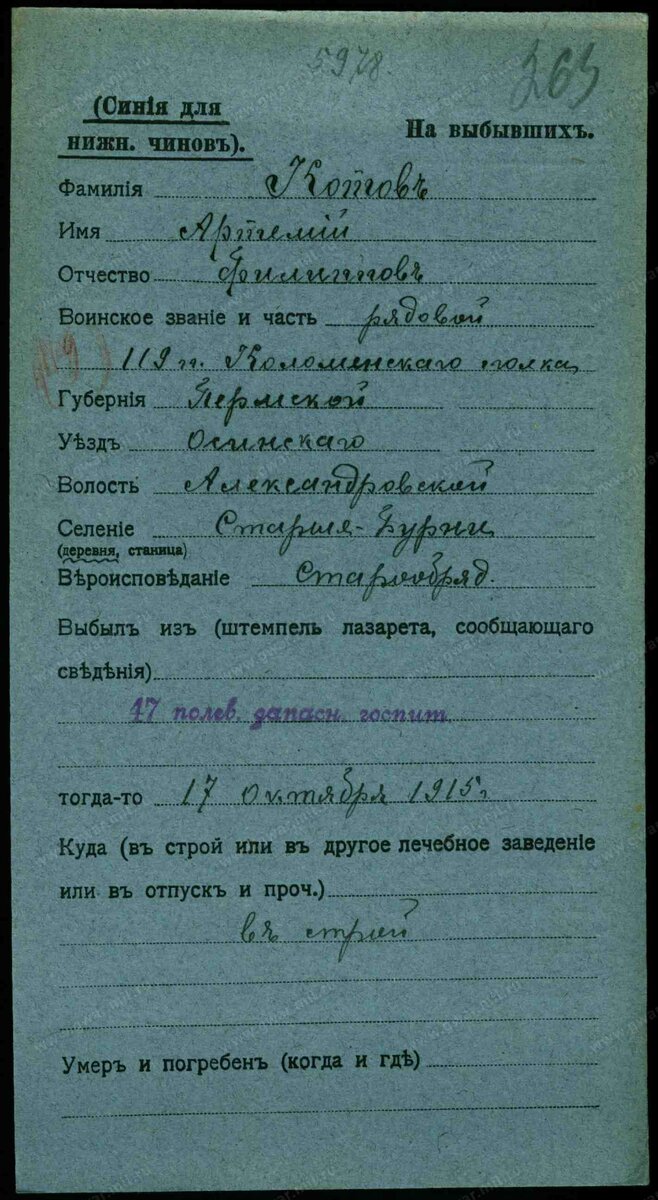 5978.
263
(Синія для
нижн. чиновъ).
На выбывшихъ.
Фамилія Котовъ
Имя Артемій
Отчество Филипповъ
Воинское званіе и часть рядовой
119 п. Коломенскаго полка
Губернія Пермской
Уѣздъ Осинскаго
Волость Александровской
Селеніе Старыя-
(деревня, станица)
Вѣроисповѣданіе Старообряд.
Выбылъ изъ (штемпель лазарета, сообщающаго
свѣдѣнія)
17 полев. запасн. госпит.
тогда-то 17 октября 1915 г
Куда (въ строй или въ другое лечебное заведеніе
или въ отпускъ и проч.)
въ строй
Умеръ и погребенъ (когда и гдѣ)